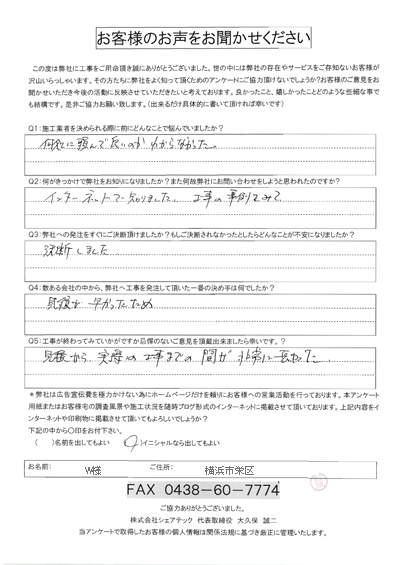 お客様のお声をお聞かせください
この度は弊社に工事をご用命頂き誠にありがとうございました。世の中には弊社の存在やサービスをご存知ないお客様が
沢山いらっしゃいます。その方たちに弊社をよく知って頂くためのアンケートにご協力頂けないでしょうか?お客様のご意見をお
聞かせいただき今後の活動に反映させていただきたいと考えております。良かったこと、嬉しかったことどのような些細な事で
も結構です。是非ご協力お願い致します。(出来るだけ具体的に書いて頂ければ幸いです)
Q1:施工業者を決められる際に前にどんなことで悩んでいましたか?
何社に頼んで良いのかわからなかった。
Q2:何がきっかけで弊社をお知りになりましたか?また何故弊社にお問い合わせをしようと思われたのですか?
インターネットで知りました。 工事の事例をみて
Q3:弊社への発注をすぐにご決断頂けましたか?もしご決断されなかったとしたらどんなことが不安になりましたか?
決断しました
Q4:数ある会社の中から、弊社へ工事を発注して頂いた一番の決め手は何でしたか?
見積が早かったため
Q5:工事が終わってみていかがですか忌憚のないご意見を頂戴出来ましたら幸いです。?
見積から、実際の工事までの間が非常に長かった。
＊弊社は広告宣伝費を極力かけない為にホームページだけを頼りにお客様への営業活動を行っております。本アンケート
用紙またはお客様宅の調査風景や施工状況を随時ブログ形式のインターネットに掲載させて頂いております。上記内容をイ
ンターネットや印刷物に掲載させて頂いてもよろしいでしょうか?
下記の中から〇印をお付下さい。
( )名前を出してもよい (〇)イニシャルなら出してもよい
お名前: W様 ご住所: 横浜市栄区
FAX 0438-60-7774
ご協力ありがとうございました。
株式会社シェアテック 代表取締役 大久保 誠二
当アンケートで取得したお客様の個人情報は関係法規に基づき厳正に管理いたします。